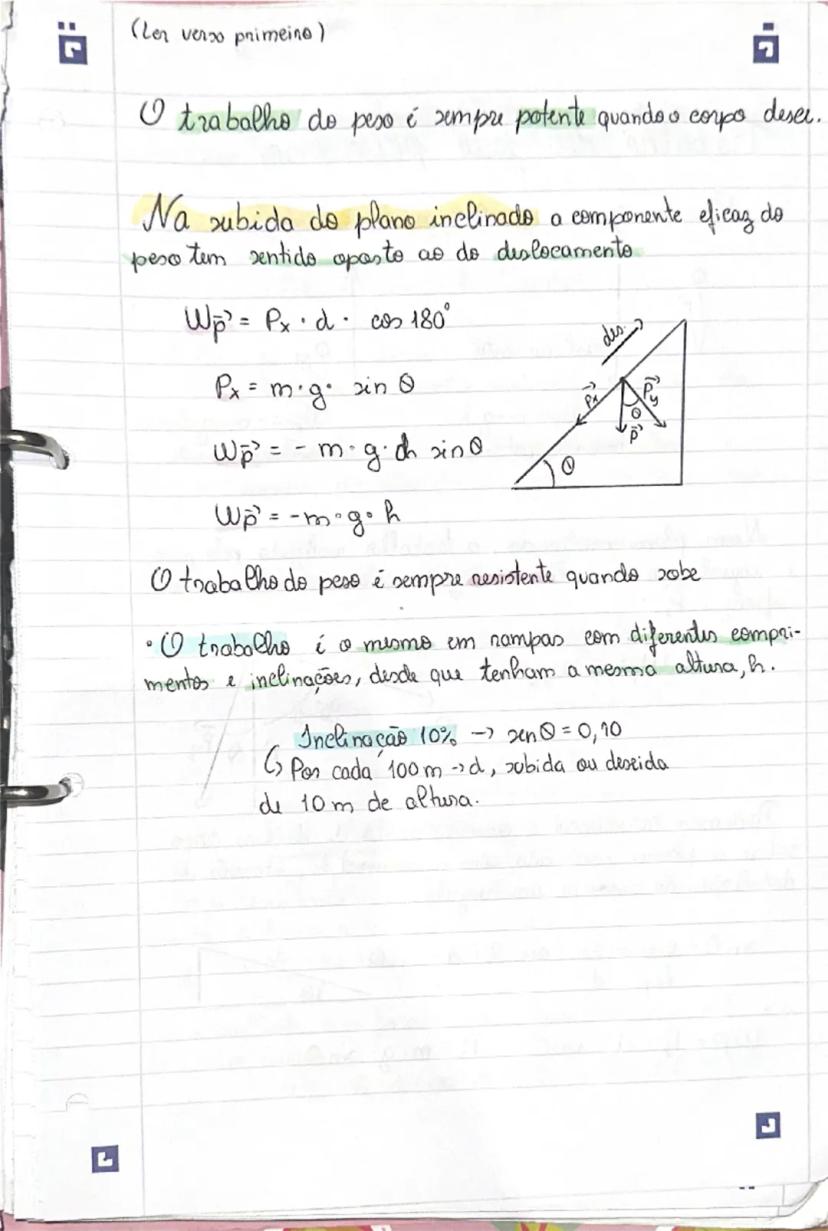 (Ler verso primeiro)
O trabalho do peso é sempre potente quando o corpo desce.
Na subida do plano inclinado a componente eficaz do
peso tem sentido oposto ao do deslocamento
Wp⃗ = Px · d · cos 180°
Px = m · g · sin θ
Wp⃗ = - m · g · d sin θ
Wp⃗ = - m · g · h
des.
P⃗x
P⃗y
θ
P⃗
θ
O trabalho do peso é sempre resistente quando sobe
· O trabalho é o mesmo em rampas com diferentes compri-
mentos e inclinações, desde que tenham a mesma altura, h.
Inclinação 10% → sen θ = 0,10
↳ Por cada 100 m → d, subida ou descida
de 10 m de altura.